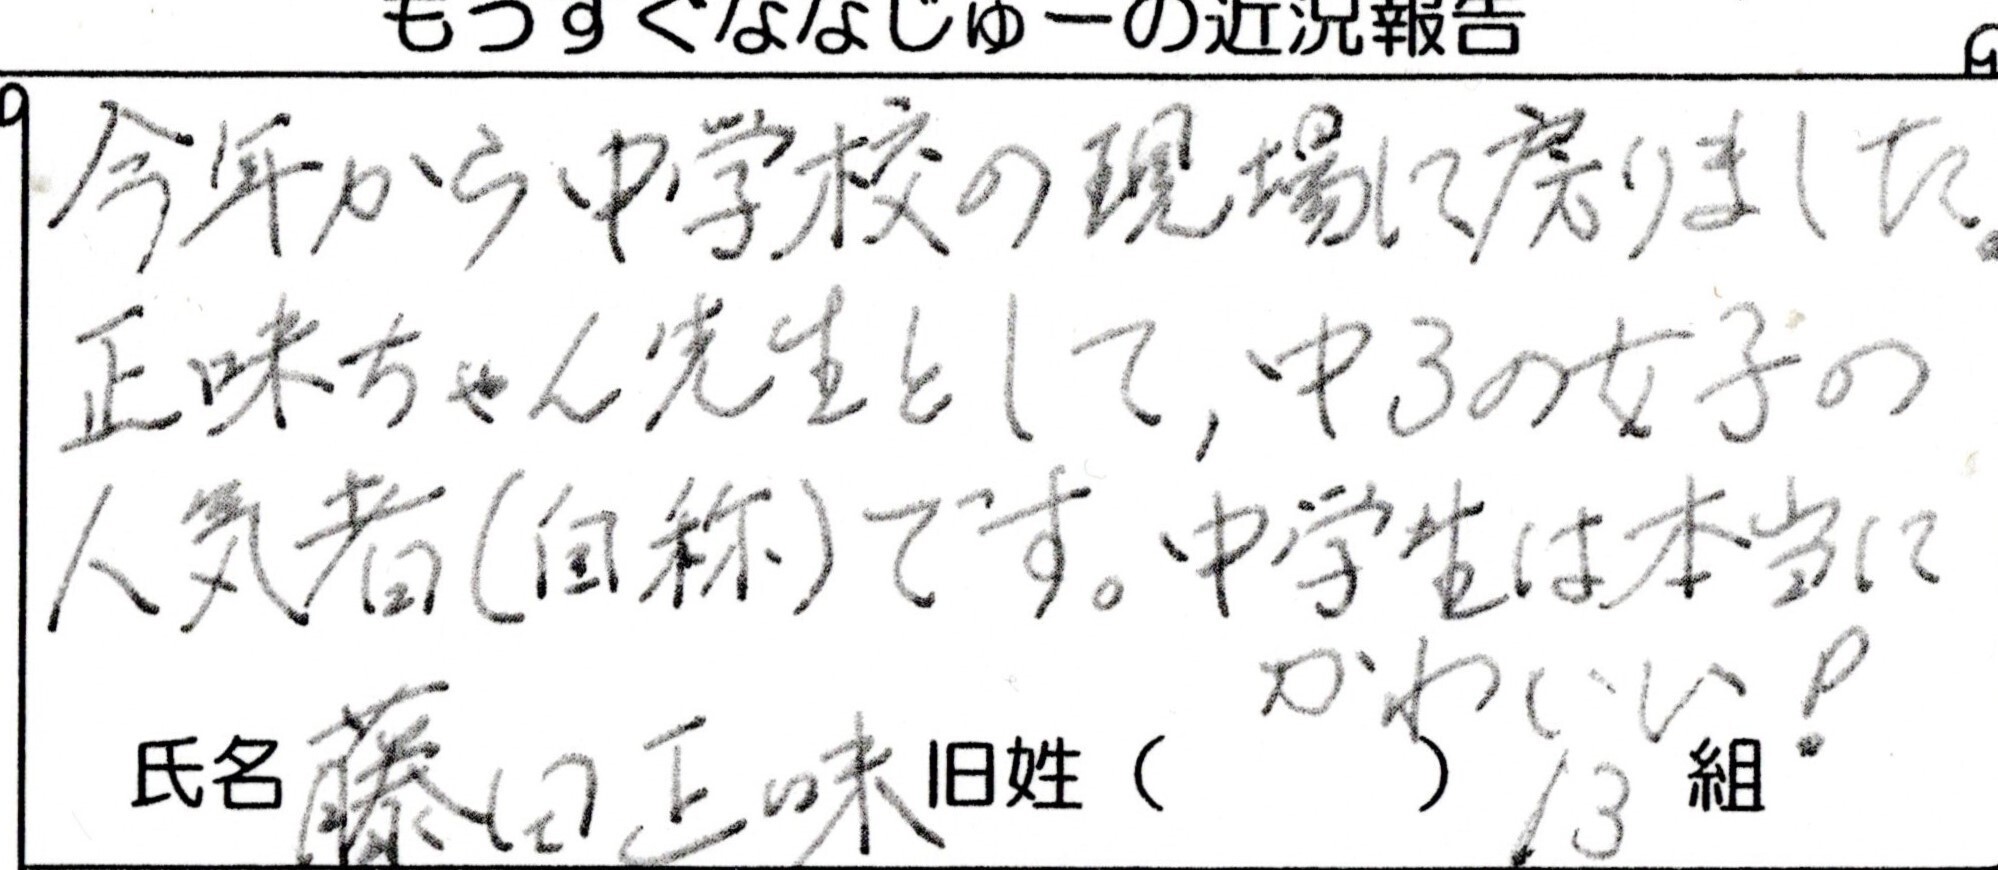 もうすぐななじゅーの近況報告
今年から中学校の現場に戻りました。
正味ちゃん先生として,中3の女子の
人気者(自称)です。中学生は本当に
かわいい!
氏名 藤田正味 旧姓( ) 13 組